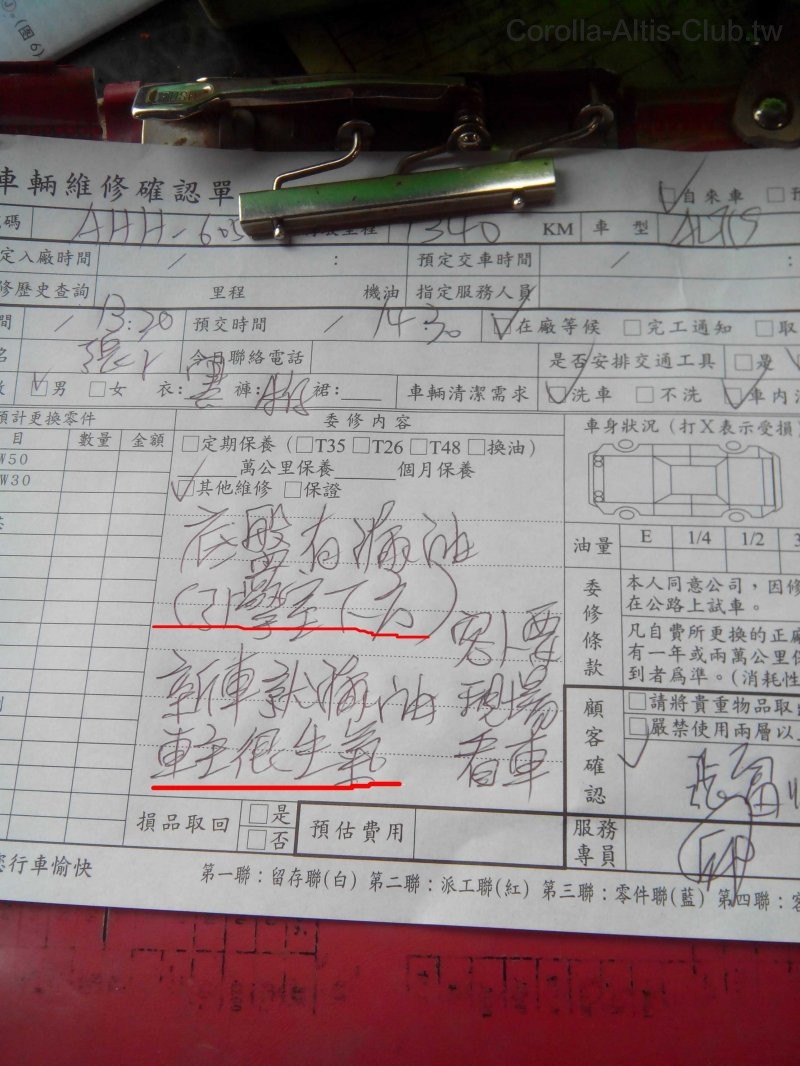 (圖6)
Corolla-Altis-Club.tw
車輛維修確認單
□自來車 □預
碼 AHH-605 1340 KM 車型 ALTIS
定入廠時間 / : 預定交車時間 / :
修歷史查詢 里程 機油 指定服務人員
間 / 13:20 預交時間 / 14:30 □在廠等候 □完工通知 □取
名 今日聯絡電話 是否安排交通工具 □是
□男 □女 衣: 褲: 裙:___ 車輛清潔需求 □洗車 □不洗 □車內
預計更換零件 委修內容 車身狀況(打X表示受損)
目 數量 金額 □定期保養(□T35 □T26 □T48 □換油)
W50 ___萬公里保養___個月保養
W30 □其他維修 □保證
底盤有漏油
(引擎室下方)
客人要
新車就漏油 現場
車主很生氣 看車
油量 E 1/4 1/2
委修條款
本人同意公司,因修
在公路上試車。
凡自費所更換的正廠
有一年或兩萬公里保
到者為準。(消耗性
顧客確認
□請將貴重物品取出
□嚴禁使用兩層以上
損品取回 □是 □否 預估費用 服務專員
您行車愉快
第一聯:留存聯(白) 第二聯:派工聯(紅) 第三聯:零件聯(藍) 第四聯:客